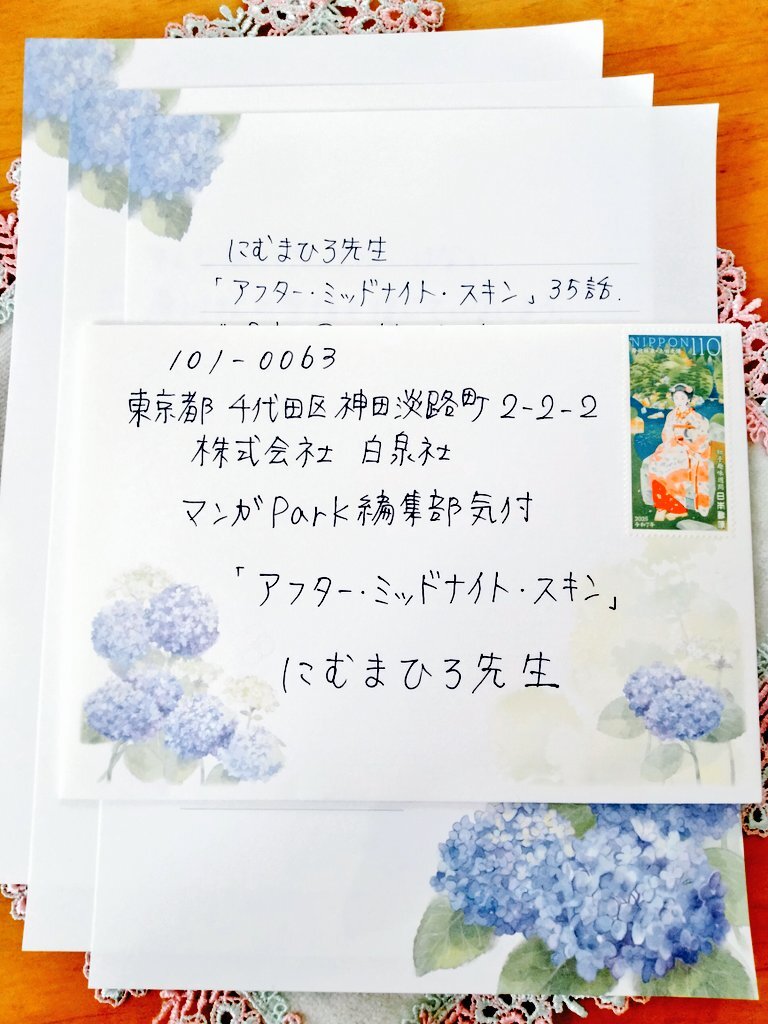 にむまひろ先生
「アフター・ミッドナイト・スキン」35話.
101-0063
東京都 千代田区 神田淡路町 2-2-2
株式会社 白泉社
マンガPark編集部気付
「アフター・ミッドナイト・スキン」
にむまひろ先生
NIPPON 110
日本郵便
2025
令和7年